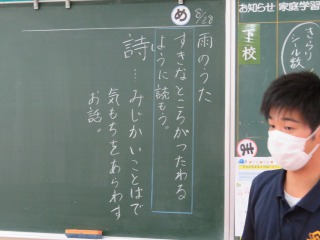 め
8/28
雨のうた
すきなところがつたわる
ように読もう。
詩…みじかいことばで
気もちをあらわす
お話。
お知らせ
家庭学習
下校
きらり
シール数
ま